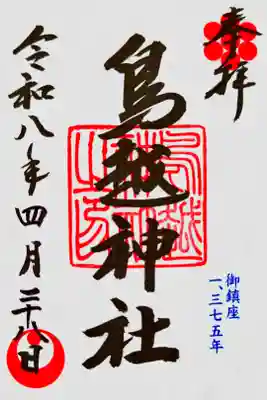 奉拝
鳥越神社
御鎮座
一、三七五年
令和八年四月二十八日